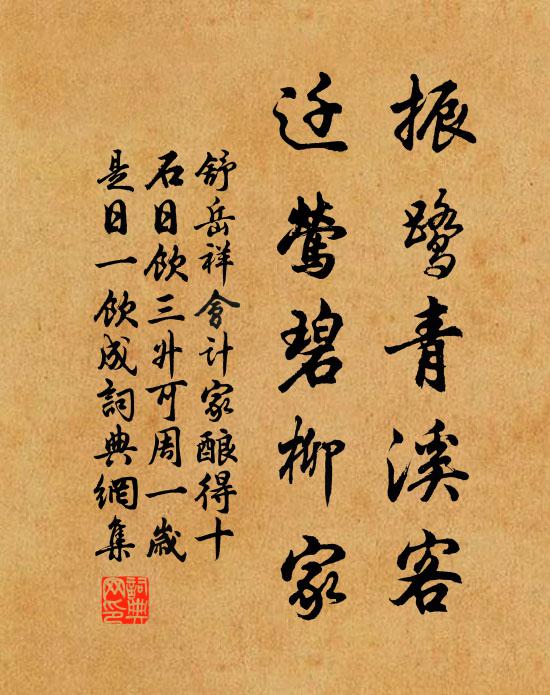 振鹭青溪客
迁莺碧柳家
舒岳祥會计家酿得十
石日饮三升可周一歲
是日一饮成詞典網集
詞典網印